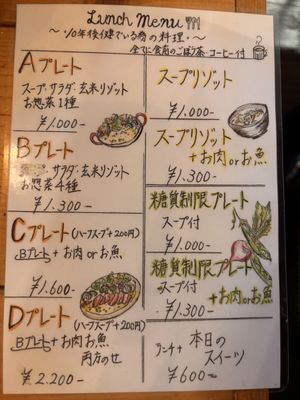 Lunch Menu
～10年後健でいる為の料理・～
全てに食前のごぼう茶・コーヒー付
Aプレート
スープ・サラダ・玄米リゾット
お惣菜1種
¥1.000-
Bプレート
サラダ・玄米リゾット
お惣菜4種
¥1.300-
Cプレート(ハーフスープ+200円)
Bプレート+お肉orお魚
¥1.600-
Dプレート(ハーフスープ+200円)
Bプレート+お肉お魚
両方のせ
¥2.200-
スープリゾット
¥1.000-
スープリゾット
+お肉orお魚
¥1.300-
糖質制限プレート
スープ付
¥1.000-
糖質制限プレート
スープ付
+お肉orお魚
¥1.300-
ランチ+本日の
スイーツ
¥600-